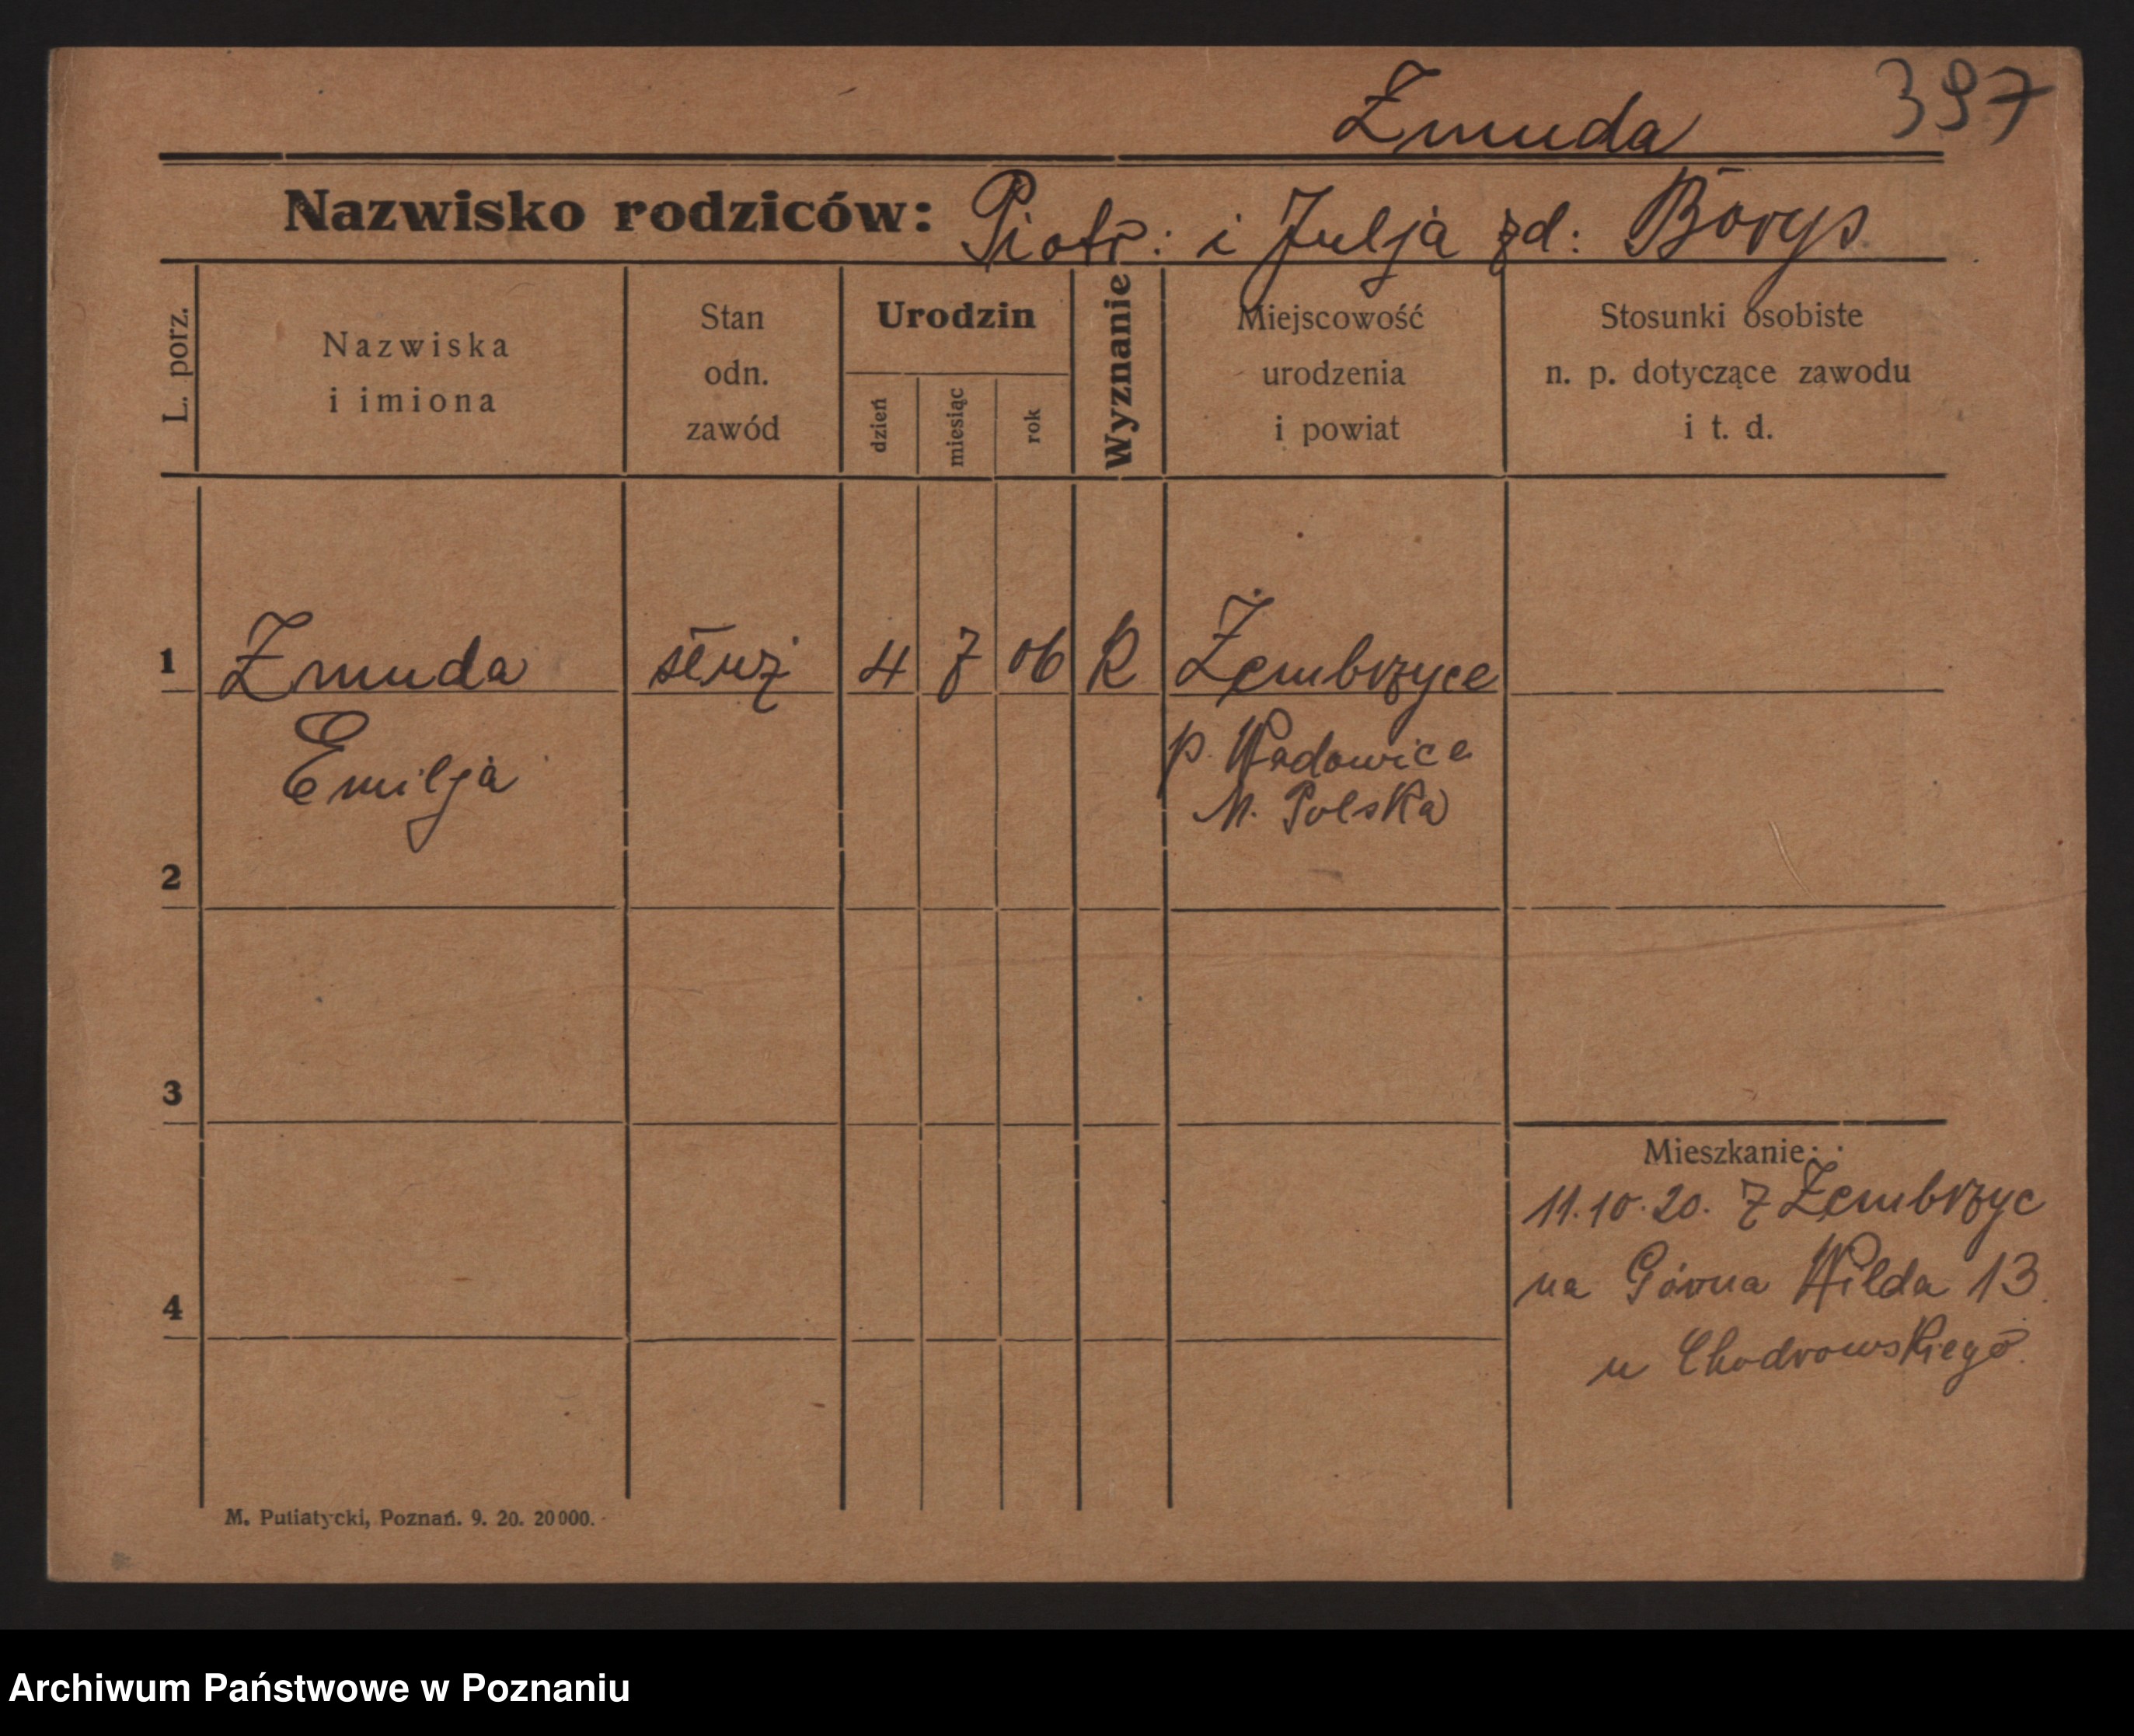 Zmuda 397
Nazwisko rodziców: Piotr: i Julja zd: Borys
L. porz.
Nazwiska
i imiona
Stan
odn.
zawód
Urodzin
dzień
miesiąc
rok
Wyznanie
Miejscowość
urodzenia
i powiat
Stosunki osobiste
n. p. dotyczące zawodu
i t. d.
1 Zmuda 4 7 06 R Żembrzyce
Emilja p. Wadowice
M. Polska
2
3
Mieszkanie:
11.10.20. z Zembrzyc
na Górna Wilda 13
u Chodrowskiego
4
M. Putiatycki, Poznań. 9. 20. 20000.
Archiwum Państwowe w Poznaniu